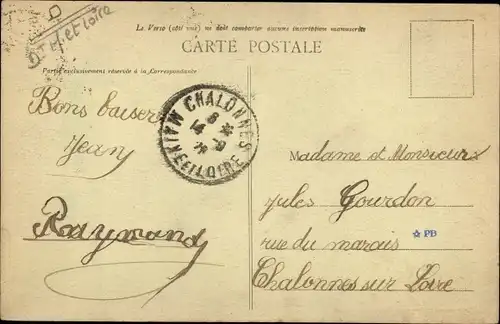 D
M et Loire
Le Verso (côté vue) ne doit comporter aucune inscription manuscrite
CARTE POSTALE
Partie exclusivement réservée à la Correspondance
Bons baisers
Jean
Raymond
CHALONNES
MAINE ET LOIRE
Madame et Monsieur
Jules Gourdon
rue du marais
Chalonnes sur Loire
PB